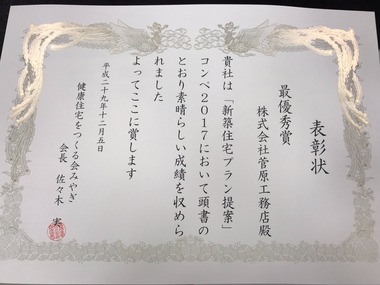 表彰状
最優秀賞
株式会社菅原工務店殿
貴社は「新築住宅プラン提案」
コンペ2017において頭書の
とおり素晴らしい成績を収めら
れました
よってここに賞します
平成二十九年十二月五日
健康住宅をつくる会みやぎ
会長 佐々木 実